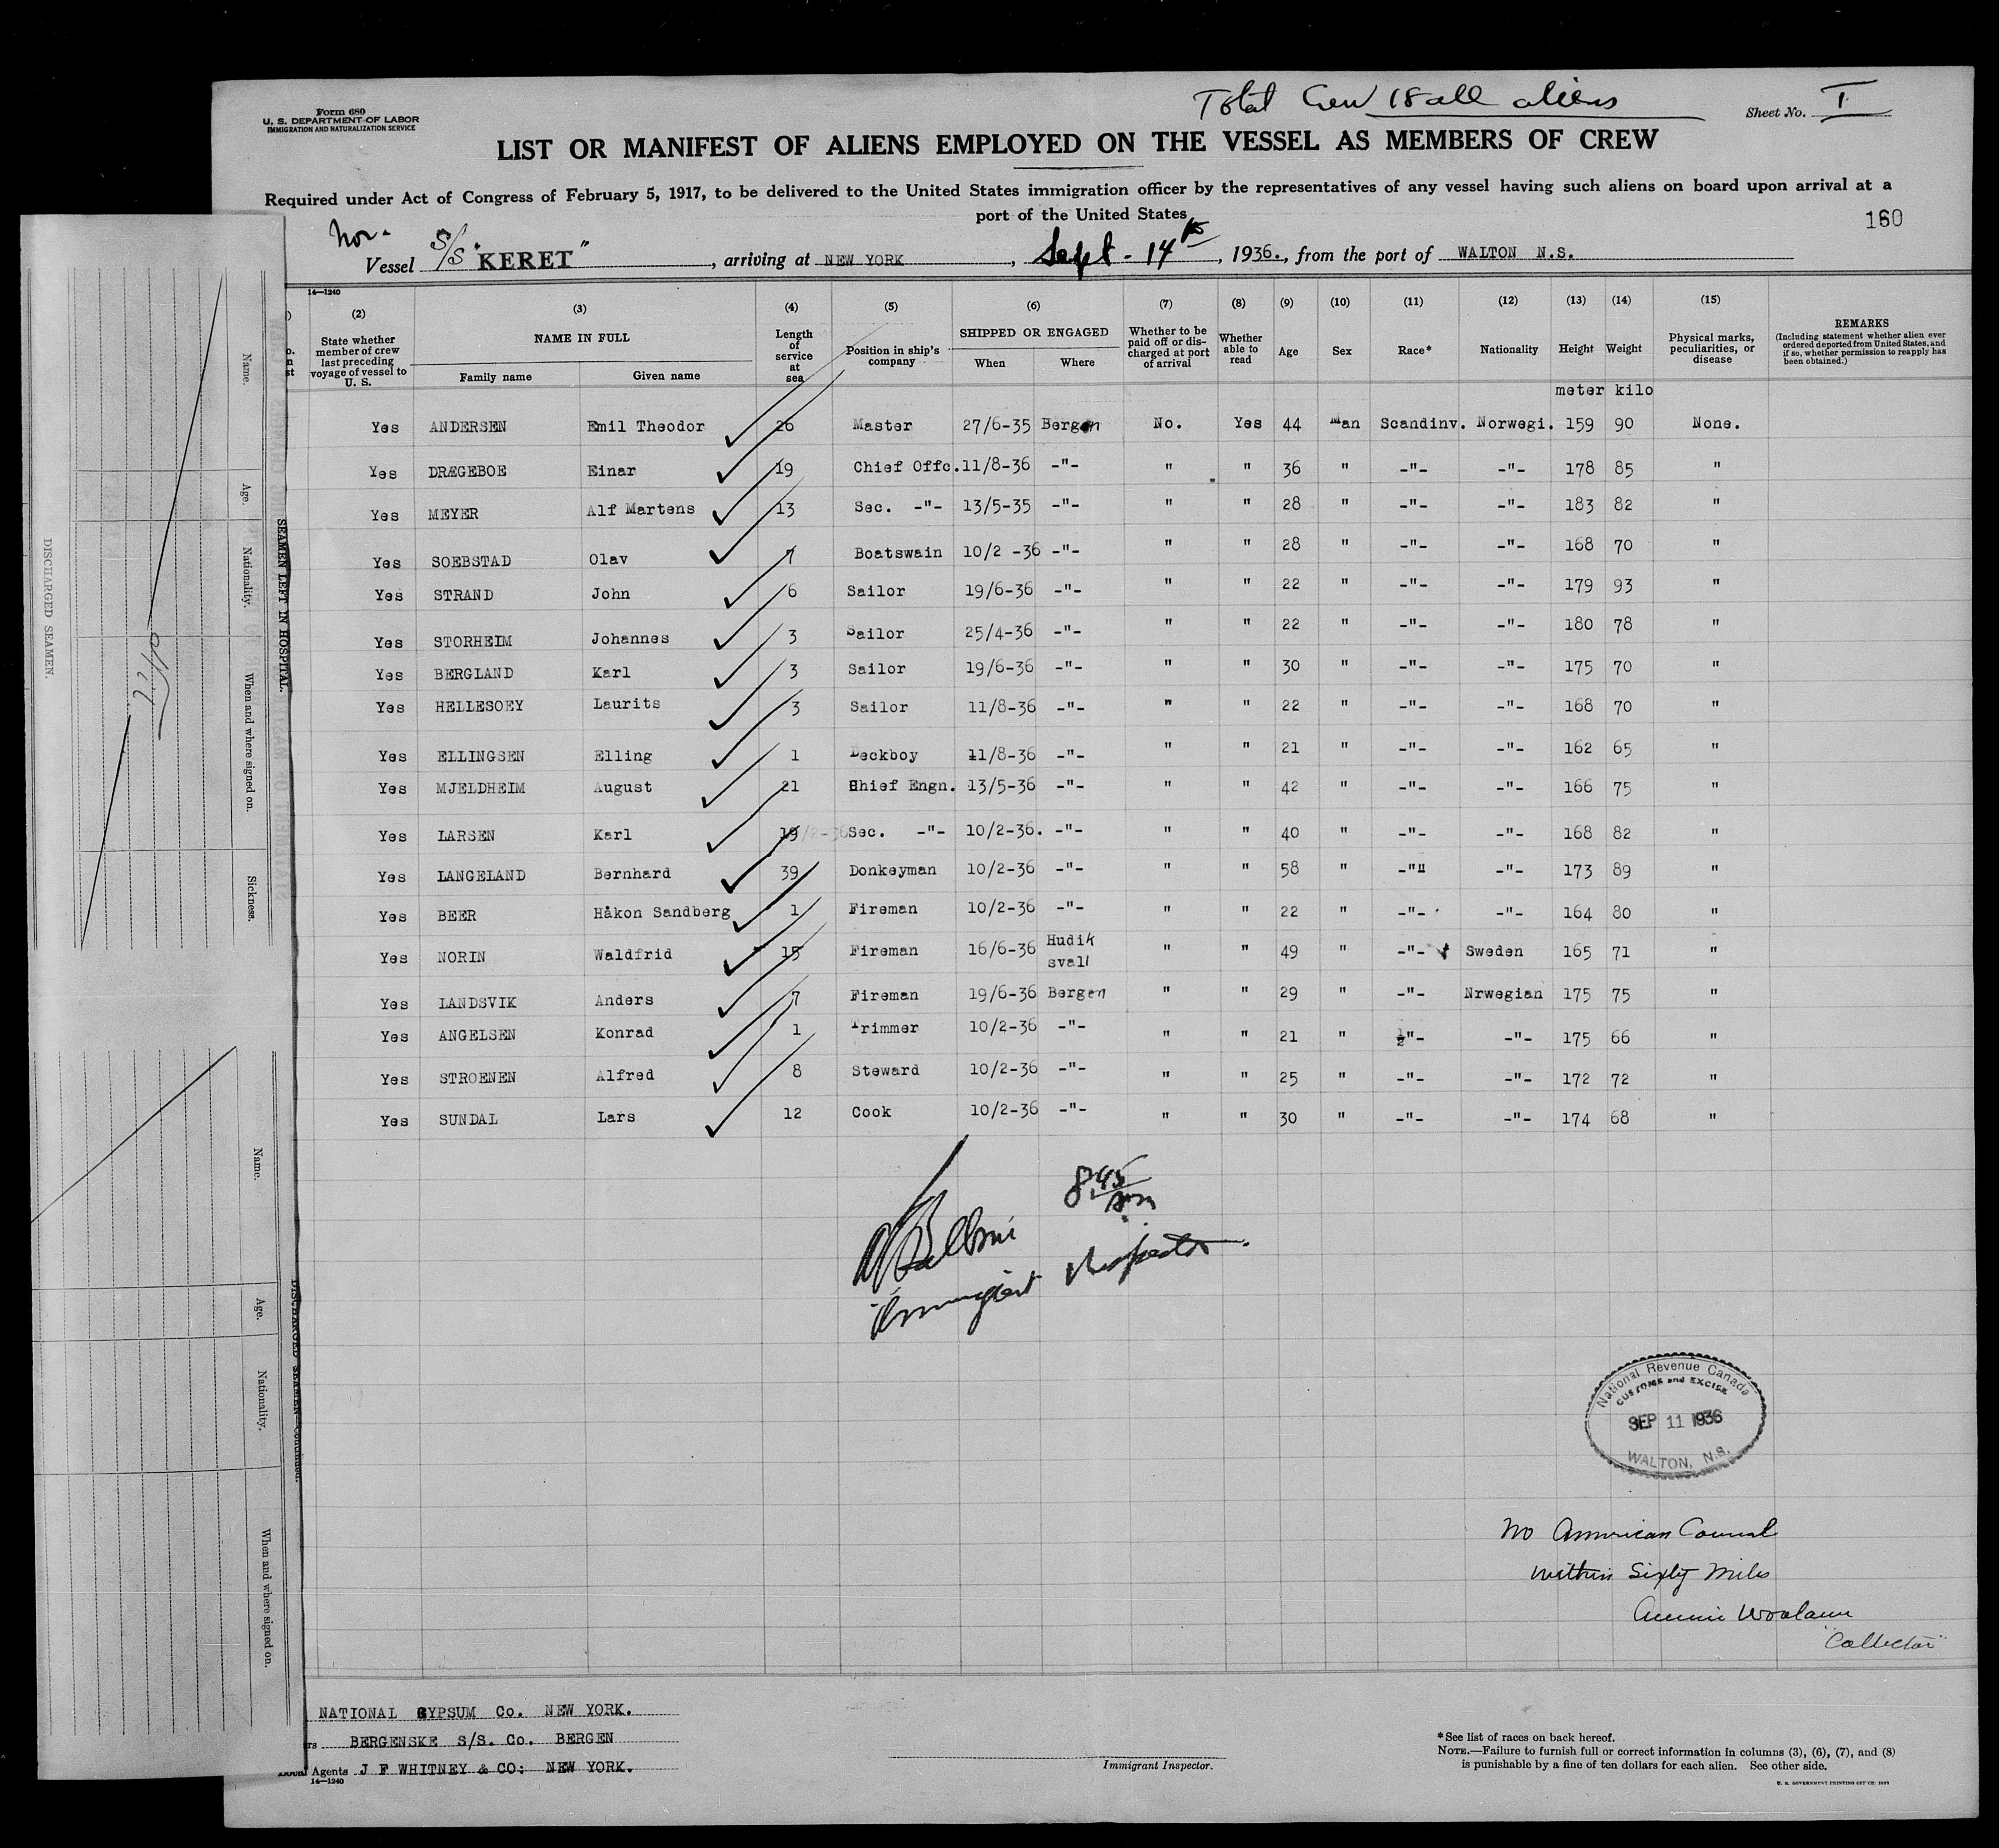 Total Crew 18 all aliens
Form 680
U. S. DEPARTMENT OF LABOR
IMMIGRATION AND NATURALIZATION SERVICE
Sheet No. I
LIST OR MANIFEST OF ALIENS EMPLOYED ON THE VESSEL AS MEMBERS OF CREW
Required under Act of Congress of February 5, 1917, to be delivered to the United States immigration officer by the representatives of any vessel having such aliens on board upon arrival at a
port of the United States
160
Nor.
Vessel S/S "KERET", arriving at NEW YORK, Sept - 14th, 1936., from the port of WALTON N.S.
14—1240
(2) (3) (4) (5) (6) (7) (8) (9) (10) (11) (12) (13) (14) (15)
State whether member of crew last preceding voyage of vessel to U. S.
NAME IN FULL
Family name Given name
Length of service at sea
Position in ship's company
SHIPPED OR ENGAGED
When Where
Whether to be paid off or discharged at port of arrival
Whether able to read
Age Sex Race* Nationality Height Weight
Physical marks, peculiarities, or disease
REMARKS
(Including statement whether alien ever ordered deported from United States, and if so, whether permission to reapply has been obtained.)
meter kilo
Yes ANDERSEN Emil Theodor 26 Master 27/6-35 Bergen No. Yes 44 Man Scandinv. Norwegi. 159 90 None.
Yes DRÆGEBOE Einar 19 Chief Offc. 11/8-36 -"- " " 36 " -"- -"- 178 85 "
Yes MEYER Alf Martens 13 Sec. -"- 13/5-35 -"- " " 28 " -"- -"- 183 82 "
Yes SOEBSTAD Olav 7 Boatswain 10/2 -36 -"- " " 28 " -"- -"- 168 70 "
Yes STRAND John 6 Sailor 19/6-36 -"- " " 22 " -"- -"- 179 93 "
Yes STORHEIM Johannes 3 Sailor 25/4-36 -"- " " 22 " -"- -"- 180 78 "
Yes BERGLAND Karl 3 Sailor 19/6-36 -"- " " 30 " -"- -"- 175 70 "
Yes HELLESOEY Laurits 3 Sailor 11/8-36 -"- " " 22 " -"- -"- 168 70 "
Yes ELLINGSEN Elling 1 Deckboy 11/8-36 -"- " " 21 " -"- -"- 162 65 "
Yes MJELDHEIM August 21 Chief Engn. 13/5-36 -"- " " 42 " -"- -"- 166 75 "
Yes LARSEN Karl 19 Sec. -"- 10/2-36. -"- " " 40 " -"- -"- 168 82 "
Yes LANGELAND Bernhard 39 Donkeyman 10/2-36 -"- " " 58 " -"" -"- 173 89 "
Yes BEER Håkon Sandberg 1 Fireman 10/2-36 -"- " " 22 " -"- -"- 164 80 "
Yes NORIN Waldfrid 15 Fireman 16/6-36 Hudiksvall " " 49 " -"- Sweden 165 71 "
Yes LANDSVIK Anders 7 Fireman 19/6-36 Bergen " " 29 " -"- Nrwegian 175 75 "
Yes ANGELSEN Konrad 1 Trimmer 10/2-36 -"- " " 21 " -"- -"- 175 66 "
Yes STROENEN Alfred 8 Steward 10/2-36 -"- " " 25 " -"- -"- 172 72 "
Yes SUNDAL Lars 12 Cook 10/2-36 -"- " " 30 " -"- -"- 174 68 "
8.45 am
Immigrant Inspector.
National Revenue Canada
CUSTOMS and EXCISE
SEP 11 1936
WALTON, N.S.
No American Consul
within Sixty Miles
"Collector"
NATIONAL GYPSUM Co. NEW YORK.
BERGENSKE S/S. Co. BERGEN
Local Agents J F WHITNEY & CO: NEW YORK.
14—1240
Immigrant Inspector.
*See list of races on back hereof.
NOTE.—Failure to furnish full or correct information in columns (3), (6), (7), and (8)
is punishable by a fine of ten dollars for each alien. See other side.
SEAMEN LEFT IN HOSPITAL.
Name. Age. Nationality. When and where signed on. Sickness.
DISCHARGED SEAMEN.
DISCHARGED SEAMEN—Continued.
Name. Age. Nationality. When and where signed on.